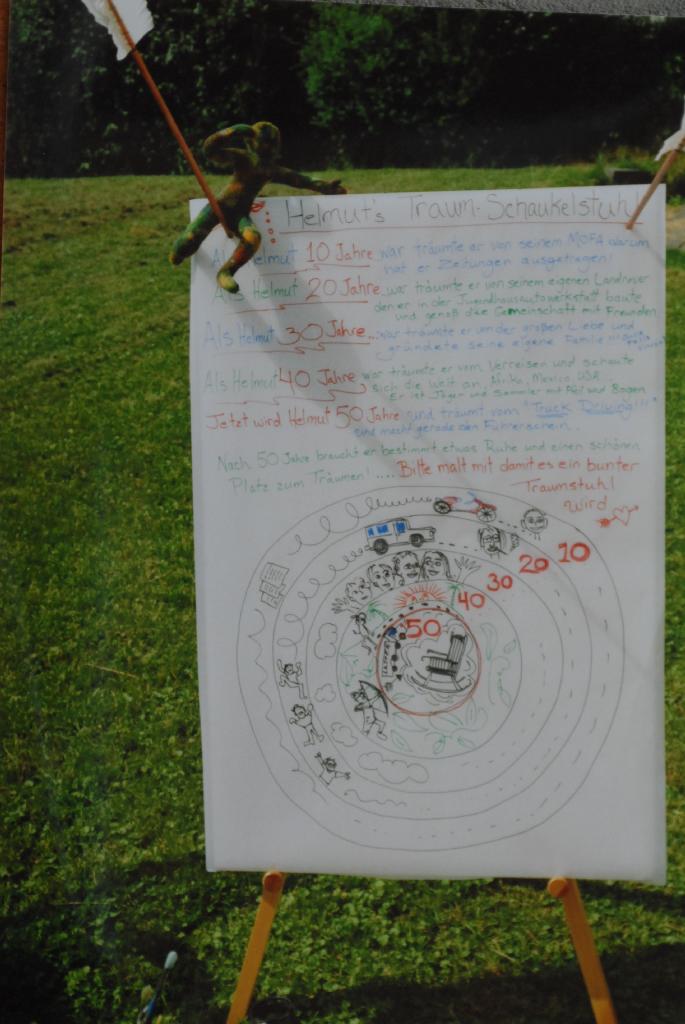 Helmut's Traum-Schaukelstuhl
Als Helmut 10 Jahre war träumte er von seinem MOFA warum
hat er Zeitungen ausgetragen!
Als Helmut 20 Jahre war träumte er von seinem eigenen Landrover
den er in der Jugendhausautowerkstatt baute
und genoß die Gemeinschaft mit Freunden
Als Helmut 30 Jahre... war träumte er von der großen Liebe und
gründete seine eigene Familie
Als Helmut 40 Jahre war träumte er vom Verreisen und schaute
sich die Welt an, Afrika, Mexico, USA
Er ist Jäger und Sammler mit Pfeil und Bogen
Jetzt wird Helmut 50 Jahre und träumt vom "Truck Driving!!!"
und macht gerade den Führerschein..
Nach 50 Jahre braucht er bestimmt etwas Ruhe und einen schönen
Platz zum Träumen! .... Bitte malt mit damit es ein bunter
Traumstuhl
wird
10
20
30
40
50